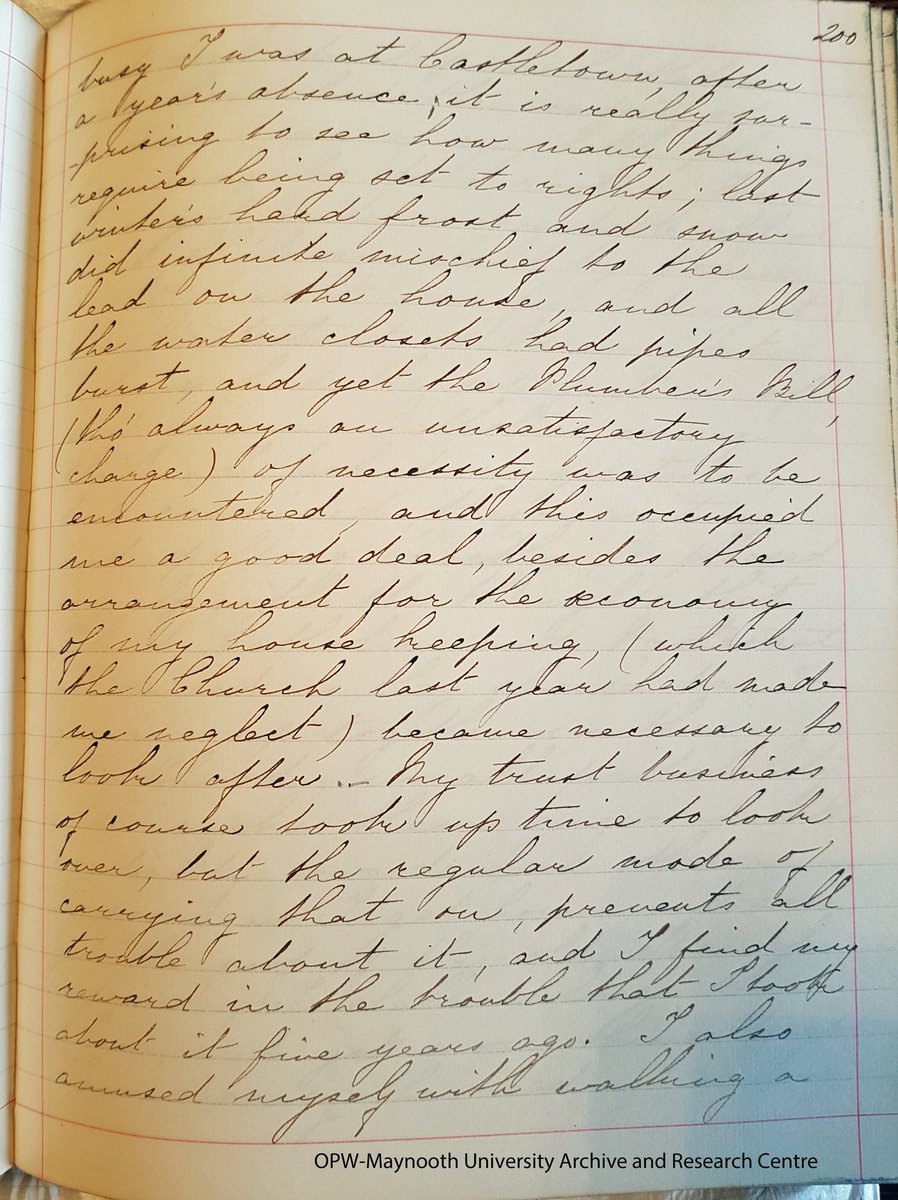 200
busy I was at Castletown, after
a year's absence, it is really sur-
-prising to see how many things
require being set to rights; last
winter's hard frost and snow
did infinite mischief to the
lead on the house, and all
the water closets had pipes
burst, and yet the Plumber's Bill,
(tho' always an unsatisfactory
charge) of necessity was to be
encountered, and this occupied
me a good deal, besides the
arrangement for the œconomy
of my house keeping, (which
the Church last year had made
me neglect) became necessary to
look after. - My trust business
of course took up time to look
over, but the regular mode of
carrying that on, prevents all
trouble about it, and I find my
reward in the trouble that I took
about it five years ago. I also
amused myself with walking a
OPW-Maynooth University Archive and Research Centre